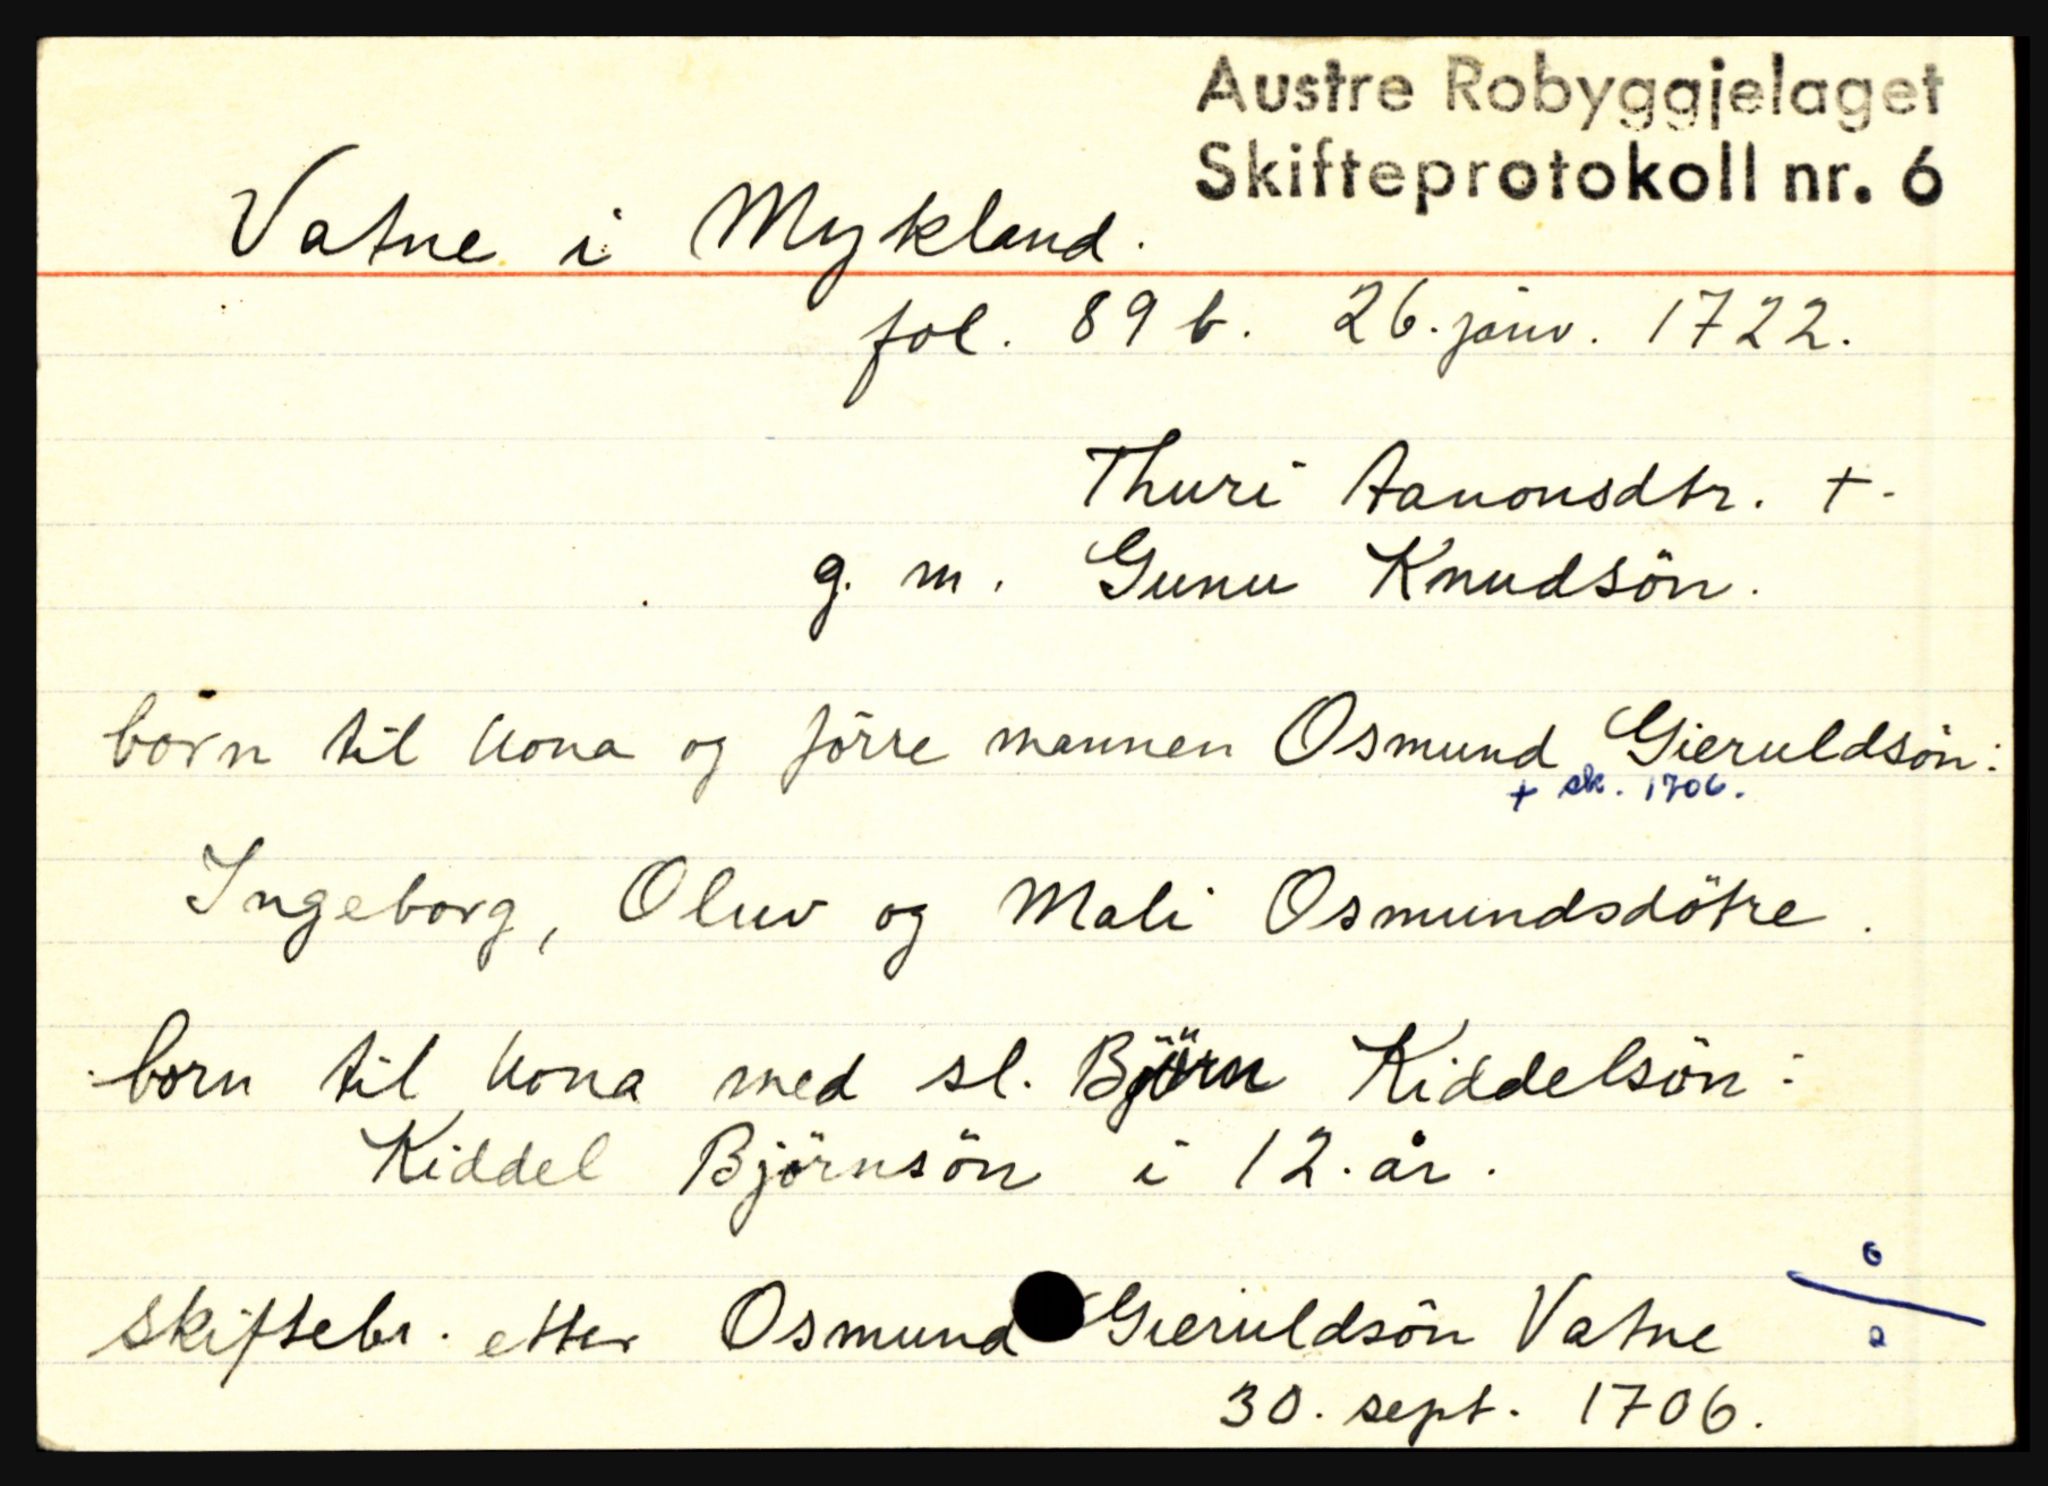 Austre Robyggjelaget
Skifteprotokoll nr. 6
Vatne i Mykland.
fol. 89 b. 26. janv. 1722.
Thuri Aanonsdtr. +.
g. m. Gunu Knudsön.
börn til kona og förre mannen Osmund Gieruldsön:
+ sk. 1706.
Ingeborg, Oluv og Mali Osmundsdötre.
born til kona med sl. Björn Kiddelsön:
Kiddel Björnsön i 12. år.
skiftebr. etter Osmund Gieruldsön Vatne
30. sept. 1706.